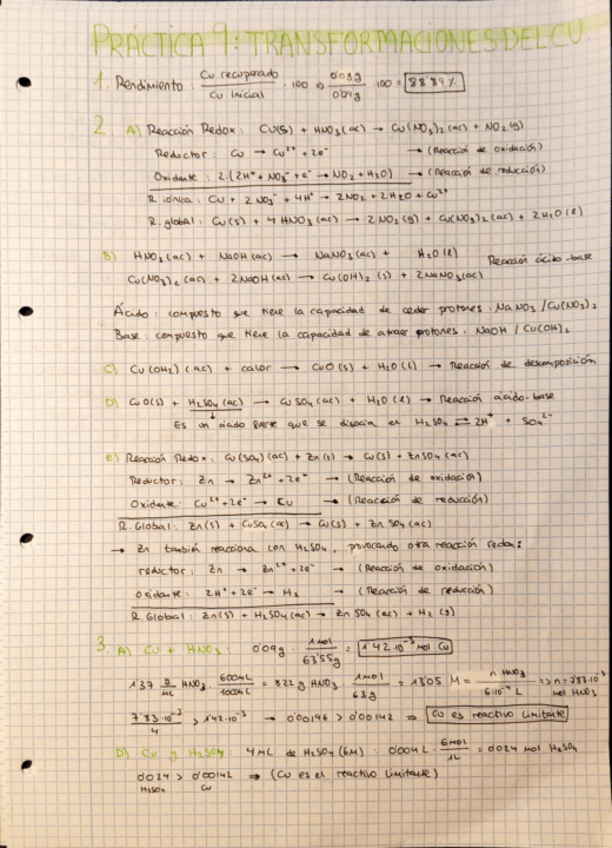 PRÁCTICA 9: TRANSFORMACIONES DEL CU
1. Rendimiento: Cu recuperado / Cu inicial · 100 ⇒ 0'08g / 0'09g · 100 = 88'89%
2. A) Reacción Redox: Cu(s) + HNO3(ac) → Cu(NO3)2(ac) + NO2(g)
Reductor: Cu → Cu2+ + 2e- → (Reacción de oxidación)
Oxidante: 2·(2H+ + NO3- + e- → NO2 + H2O) → (Reacción de reducción)
R. iónica: Cu + 2NO3- + 4H+ → 2NO2 + 2H2O + Cu2+
R. global: Cu(s) + 4HNO3(ac) → 2NO2(g) + Cu(NO3)2(ac) + 2H2O(l)
B) HNO3(ac) + NaOH(ac) → NaNO3(ac) + H2O(l) Reacción ácido-base
Cu(NO3)2(ac) + 2NaOH(ac) → Cu(OH)2(s) + 2NaNO3(ac)
Ácido: compuesto que tiene la capacidad de ceder protones. NaNO3/Cu(NO3)2
Base: compuesto que tiene la capacidad de atraer protones. NaOH/Cu(OH)2
C) Cu(OH2)(ac) + calor → CuO(s) + H2O(l) → Reacción de descomposición
D) CuO(s) + H2SO4(ac) → CuSO4(ac) + H2O(l) → Reacción ácido-base
Es un ácido fuerte que se disocia en H2SO4 ⇌ 2H+ + SO42-
E) Reacción Redox: Cu(SO4)(ac) + Zn(s) → Cu(s) + ZnSO4(ac)
Reductor: Zn → Zn2+ + 2e- → (Reacción de oxidación)
Oxidante: Cu2+ + 2e- → Cu → (Reacción de reducción)
R. Global: Zn(s) + CuSO4(ac) → Cu(s) + ZnSO4(ac)
→ Zn también reacciona con H2SO4, provocando otra reacción redox:
reductor: Zn → Zn2+ + 2e- → (Reacción de oxidación)
oxidante: 2H+ + 2e- → H2 → (Reacción de reducción)
R. Global: Zn(s) + H2SO4(ac) → ZnSO4(ac) + H2(g)
3. A) Cu + HNO3: 0'09g · 1mol / 63'55g = 1'42·10-3 mol Cu
1'37 g/mL HNO3 · 600mL / 1000mL = 822g HNO3 · 1mol / 63g = 13'05 M = n HNO3 / 6·10-4 L ⇒ n = 7'83·10-3 mol HNO3
7'83·10-3 / 4 > 1'42·10-3 → 0'00196 > 0'00142 ⇒ Cu es reactivo limitante
D) Cu y H2SO4: 4mL de H2SO4 (6M): 0'004L · 6mol / 1L = 0'024 mol H2SO4
0'024 > 0'00142 ⇒ (Cu es el reactivo limitante)
H2SO4 Cu